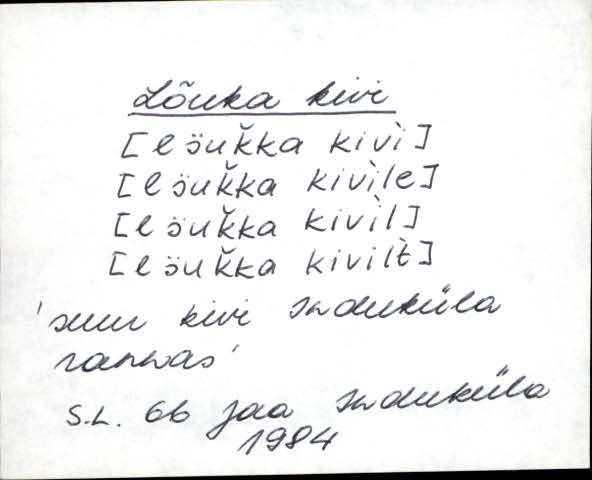 Lõuka kivi
[löuk̆ka kivì]
[löuk̆ka kivìle]
[löuk̆ka kivìl]
[löuk̆ka kivilt̀]
'suur kivi Induküla
rannas'
S.L. 66 Jaa Induküla
1984